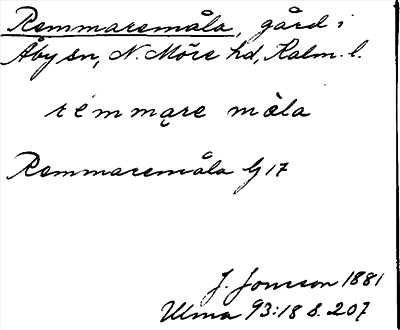 Remmaremåla, gård i
Åby sn, N. Möre hd, Kalm. l.
rémmąre måla
Remmaremåla Gj 17
J. Jonsson 1881
Ulma 93:18 s. 207